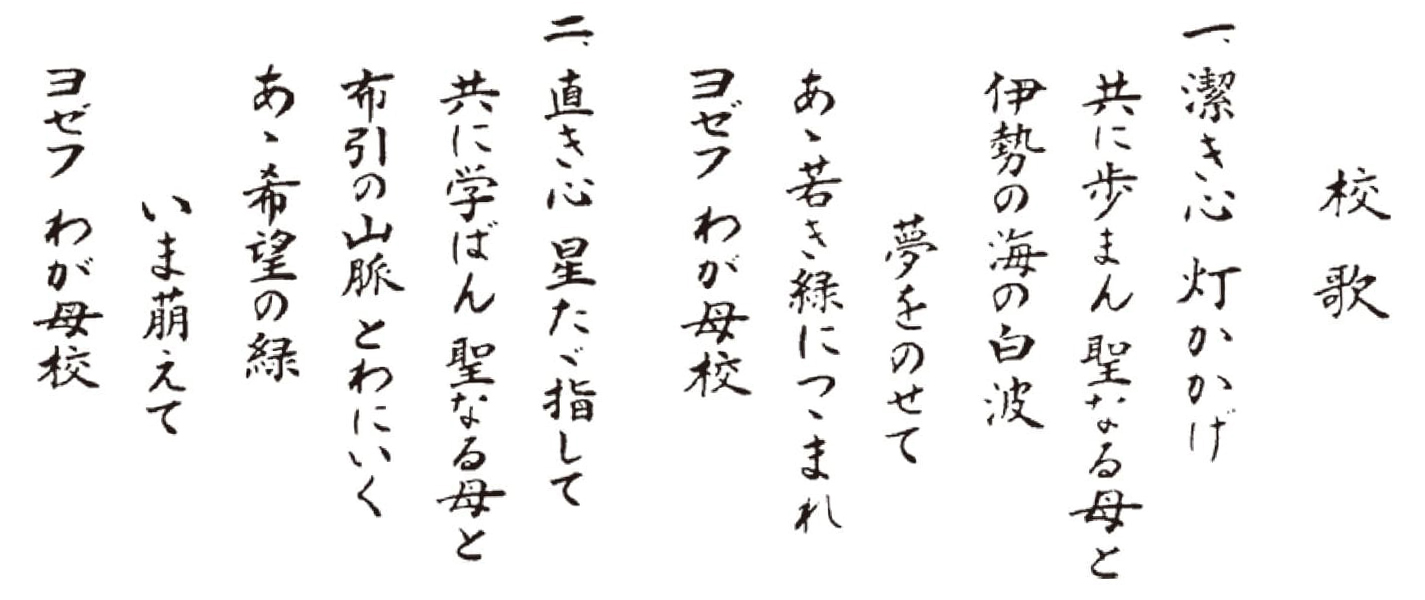 校歌
一、潔き心 灯かかげ
共に歩まん 聖なる母と
伊勢の海の白波
夢をのせて
あゝ若き緑につゝまれ
ヨゼフ わが母校
二、直き心 星たゞ指して
共に学ばん 聖なる母と
布引の山脈 とわにいく
あゝ希望の緑
いま萠えて
ヨゼフ わが母校